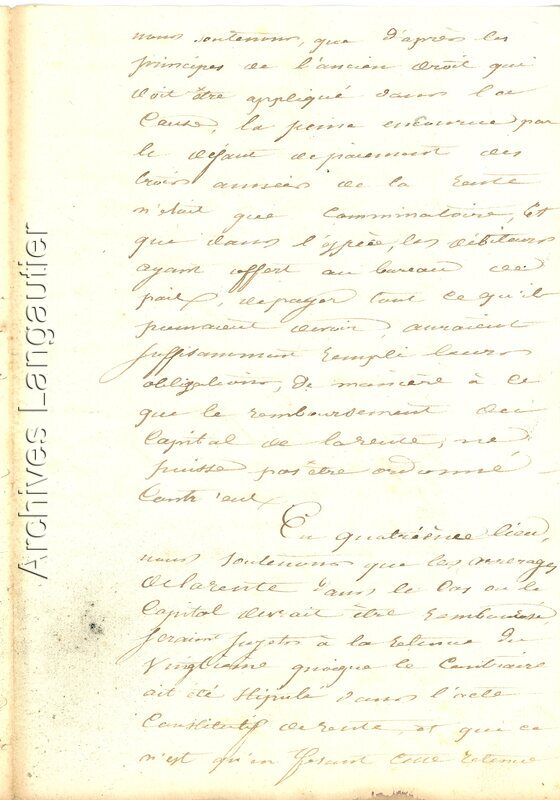 nous soutenons, que d'après les
principes de l'ancien droit qui
doit être appliqué dans la
Cause, la peine encourue par
le défaut de paiement des
trois années de la rente
n'était que Comminatoire, Et
que dans l'éspèce, les débiteurs
ayant offert au bureau de
paix, de payer tout ce qu'il
pouvaient devoir, auraient
suffisamment rempli leurs
obligations, de manière à ce
que le remboursement du
Capital de la rente, ne
puisse pas être ordonné
Contr'eux
En quatrième lieu,
nous soutenons que les arrerages
de la rente dans le Cas où le
Capital devrait être remboursé
seraient sujets à la retenue du
Vingtième quoique le Contraire
ait été stipulé dans l'acte
Constitutif de rente, et que ce
n'est qu'en fesant cette retenue
Archives Langautier